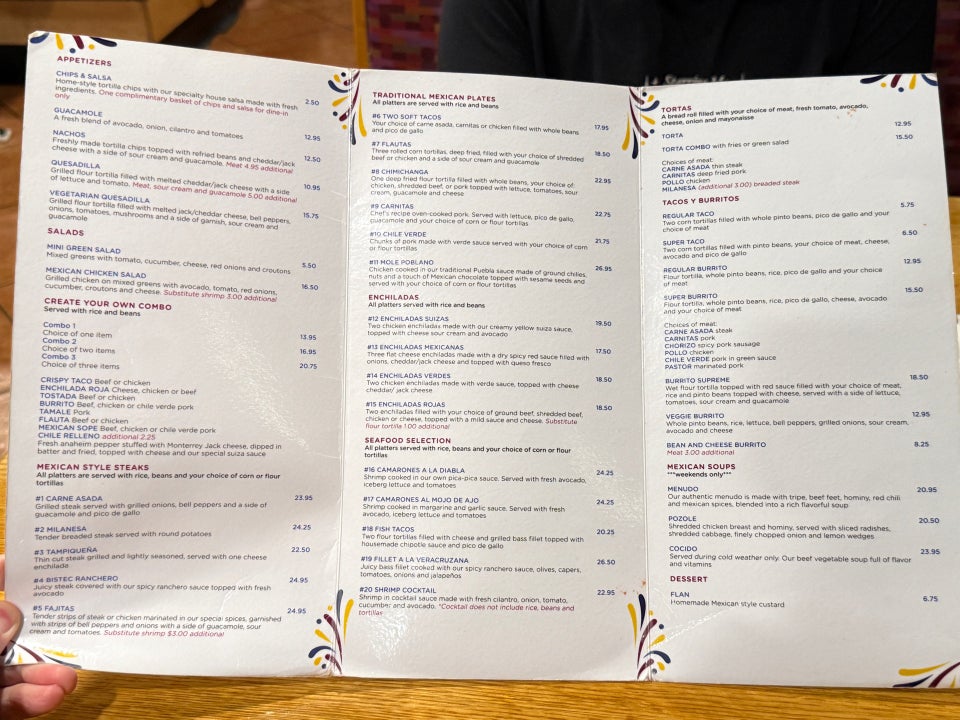 APPETIZERS
CHIPS & SALSA
Home-style tortilla chips with our specialty house salsa made with fresh
ingredients. One complimentary basket of chips and salsa for dine-in
only
2.50
GUACAMOLE
A fresh blend of avocado, onion, cilantro and tomatoes
12.95
NACHOS
Freshly made tortilla chips topped with refried beans and cheddar/jack
cheese with a side of sour cream and guacamole. Meat 4.95 additional
12.50
QUESADILLA
Grilled flour tortilla filled with melted cheddar/jack cheese with a side
of lettuce and tomato. Meat, sour cream and guacamole 5.00 additional
10.95
VEGETARIAN QUESADILLA
Grilled flour tortilla filled with melted jack/cheddar cheese, bell peppers,
onions, tomatoes, mushrooms and a side of garnish, sour cream and
guacamole
15.75
SALADS
MINI GREEN SALAD
Mixed greens with tomato, cucumber, cheese, red onions and croutons
5.50
MEXICAN CHICKEN SALAD
Grilled chicken on mixed greens with avocado, tomato, red onions,
cucumber, croutons and cheese. Substitute shrimp 3.00 additional
16.50
CREATE YOUR OWN COMBO
Served with rice and beans
Combo 1
Choice of one item
13.95
Combo 2
Choice of two items
16.95
Combo 3
Choice of three items
20.75
CRISPY TACO Beef or chicken
ENCHILADA ROJA Cheese, chicken or beef
TOSTADA Beef or chicken
BURRITO Beef, chicken or chile verde pork
TAMALE Pork
FLAUTA Beef or chicken
MEXICAN SOPE Beef, chicken or chile verde pork
CHILE RELLENO additional 2.25
Fresh anaheim pepper stuffed with Monterrey Jack cheese, dipped in
batter and fried, topped with cheese and our special suiza sauce
MEXICAN STYLE STEAKS
All platters are served with rice, beans and your choice of corn or flour
tortillas
#1 CARNE ASADA
Grilled steak served with grilled onions, bell peppers and a side of
guacamole and pico de gallo
23.95
#2 MILANESA
Tender breaded steak served with round potatoes
24.25
#3 TAMPIQUEÑA
Thin cut steak grilled and lightly seasoned, served with one cheese
enchilada
22.50
#4 BISTEC RANCHERO
Juicy steak covered with our spicy ranchero sauce topped with fresh
avocado
24.95
#5 FAJITAS
Tender strips of steak or chicken marinated in our special spices, garnished
with strips of bell peppers and onions with a side of guacamole, sour
cream and tomatoes. Substitute shrimp $3.00 additional
24.95
TRADITIONAL MEXICAN PLATES
All platters are served with rice and beans
#6 TWO SOFT TACOS
Your choice of carne asada, carnitas or chicken filled with whole beans
and pico de gallo
17.95
#7 FLAUTAS
Three rolled corn tortillas, deep fried, filled with your choice of shredded
beef or chicken and a side of sour cream and guacamole
18.50
#8 CHIMICHANGA
One deep fried flour tortilla filled with whole beans, your choice of:
chicken, shredded beef, or pork topped with lettuce, tomatoes, sour
cream, guacamole and cheese
22.95
#9 CARNITAS
Chef's recipe oven-cooked pork. Served with lettuce, pico de gallo,
guacamole and your choice of corn or flour tortillas
22.75
#10 CHILE VERDE
Chunks of pork made with verde sauce served with your choice of corn
or flour tortillas
21.75
#11 MOLE POBLANO
Chicken cooked in our traditional Puebla sauce made of ground chilies,
nuts and a touch of Mexican chocolate topped with sesame seeds and
served with your choice of corn or flour tortillas
26.95
ENCHILADAS
All platters served with rice and beans
#12 ENCHILADAS SUIZAS
Two chicken enchiladas made with our creamy yellow suiza sauce,
topped with cheese sour cream and avocado
19.50
#13 ENCHILADAS MEXICANAS
Three flat cheese enchiladas made with a dry spicy red sauce filled with
onions, cheddar/jack cheese and topped with queso fresco
17.50
#14 ENCHILADAS VERDES
Two chicken enchiladas made with verde sauce, topped with cheese
cheddar/ jack cheese
18.50
#15 ENCHILADAS ROJAS
Two enchiladas filled with your choice of ground beef, shredded beef,
chicken or cheese, topped with a mild sauce and cheese. Substitute
flour tortilla 1.00 additional
18.50
SEAFOOD SELECTION
All platters served with rice, beans and your choice of corn or flour
tortillas
#16 CAMARONES A LA DIABLA
Shrimp cooked in our own pica-pica sauce. Served with fresh avocado,
iceberg lettuce and tomatoes
24.25
#17 CAMARONES AL MOJO DE AJO
Shrimp cooked in margarine and garlic sauce. Served with fresh
avocado, iceberg lettuce and tomatoes
24.25
#18 FISH TACOS
Two flour tortillas filled with cheese and grilled bass fillet topped with
housemade chipotle sauce and pico de gallo
20.25
#19 FILLET A LA VERACRUZANA
Juicy bass fillet cooked with our spicy ranchero sauce, olives, capers,
tomatoes, onions and jalapeños
26.50
#20 SHRIMP COCKTAIL
Shrimp in cocktail sauce made with fresh cilantro, onion, tomato,
cucumber and avocado. *Cocktail does not include rice, beans and
tortillas
22.95
TORTAS
A bread roll filled with your choice of meat, fresh tomato, avocado,
cheese, onion and mayonaisse
TORTA
12.95
TORTA COMBO with fries or green salad
15.50
Choices of meat:
CARNE ASADA thin steak
CARNITAS deep fried pork
POLLO chicken
MILANESA (additional 3.00) breaded steak
TACOS Y BURRITOS
REGULAR TACO
Two corn tortillas filled with whole pinto beans, pico de gallo and your
choice of meat
5.75
SUPER TACO
Two corn tortillas filled with pinto beans, your choice of meat, cheese,
avocado and pico de gallo
6.50
REGULAR BURRITO
Flour tortilla, whole pinto beans, rice, pico de gallo and your choice
of meat
12.95
SUPER BURRITO
Flour tortilla, whole pinto beans, rice, pico de gallo, cheese, avocado
and your choice of meat
15.50
Choices of meat:
CARNE ASADA steak
CARNITAS pork
CHORIZO spicy pork sausage
POLLO chicken
CHILE VERDE pork in green sauce
PASTOR marinated pork
BURRITO SUPREME
Wet flour tortilla topped with red sauce filled with your choice of meat,
rice and pinto beans topped with cheese, served with a side of lettuce,
tomatoes, sour cream and guacamole
18.50
VEGGIE BURRITO
Whole pinto beans, rice, lettuce, bell peppers, grilled onions, sour cream,
avocado and cheese
12.95
BEAN AND CHEESE BURRITO
Meat 3.00
8.25
MEXICAN SOUPS
***weekends only***
MENUDO
Our authentic menudo is made with tripe, beef feet, hominy, red chili
and mexican spices, blended into a rich flavorful soup
20.95
POZOLE
Shredded chicken breast and hominy, served with sliced radishes,
shredded cabbage, finely chopped onion and lemon wedges
20.50
COCIDO
Served during cold weather only. Our beef vegetable soup full of flavor
and vitamins
23.95
DESSERT
FLAN
Homemade Mexican style custard
6.75